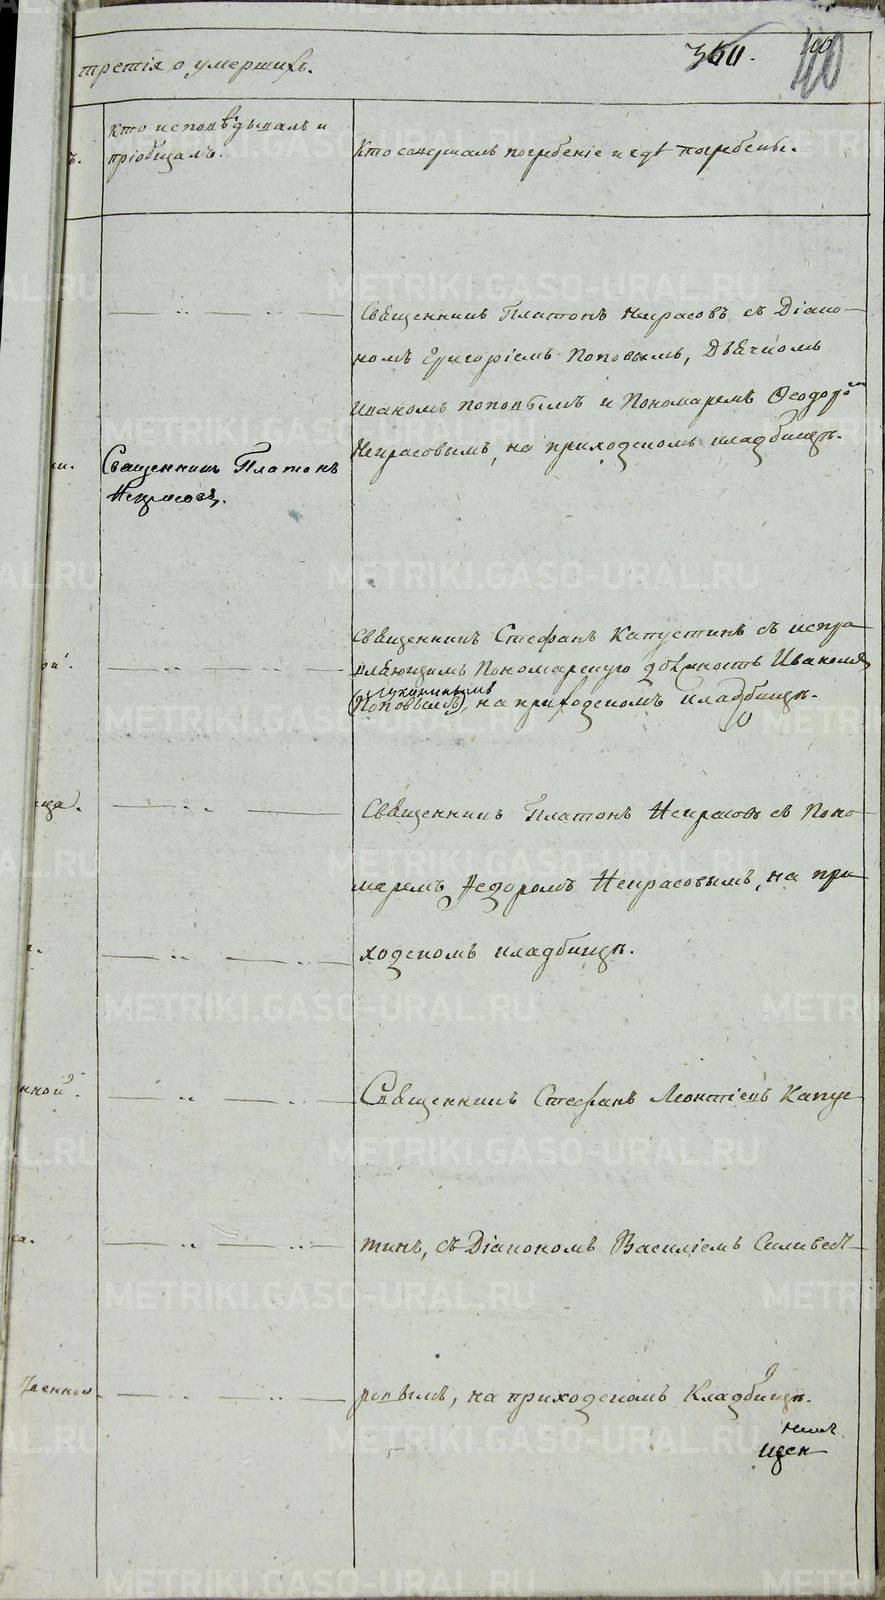 третія о умершихъ.
360.
100
кто исповѣдывалъ и
пріобщалъ.
Кто совершалъ погребеніе и гдѣ погребены.
Священникъ Платонъ Некрасовъ съ Діако-
номъ Григоріемъ Поповымъ, Дьячкомъ
Иваномъ Поповымъ и Пономаремъ Ѳеодоромъ
Некрасовымъ, на приходскомъ кладбищѣ.
Священникъ Платонъ
Некрасовъ.
Священникъ Стефанъ Капустинъ съ испра-
вляющимъ Пономарскую должность Иваномъ
Поповымъ, на приходскомъ кладбищѣ.
Священникъ Платонъ Некрасовъ съ Поно-
маремъ Ѳедоромъ Некрасовымъ, на при-
ходскомъ кладбищѣ.
Священникъ Стефанъ Леонтіевъ Капус-
тинъ, съ Діакономъ Василіемъ Сильвест-
ровымъ, на приходскомъ Кладбищѣ.